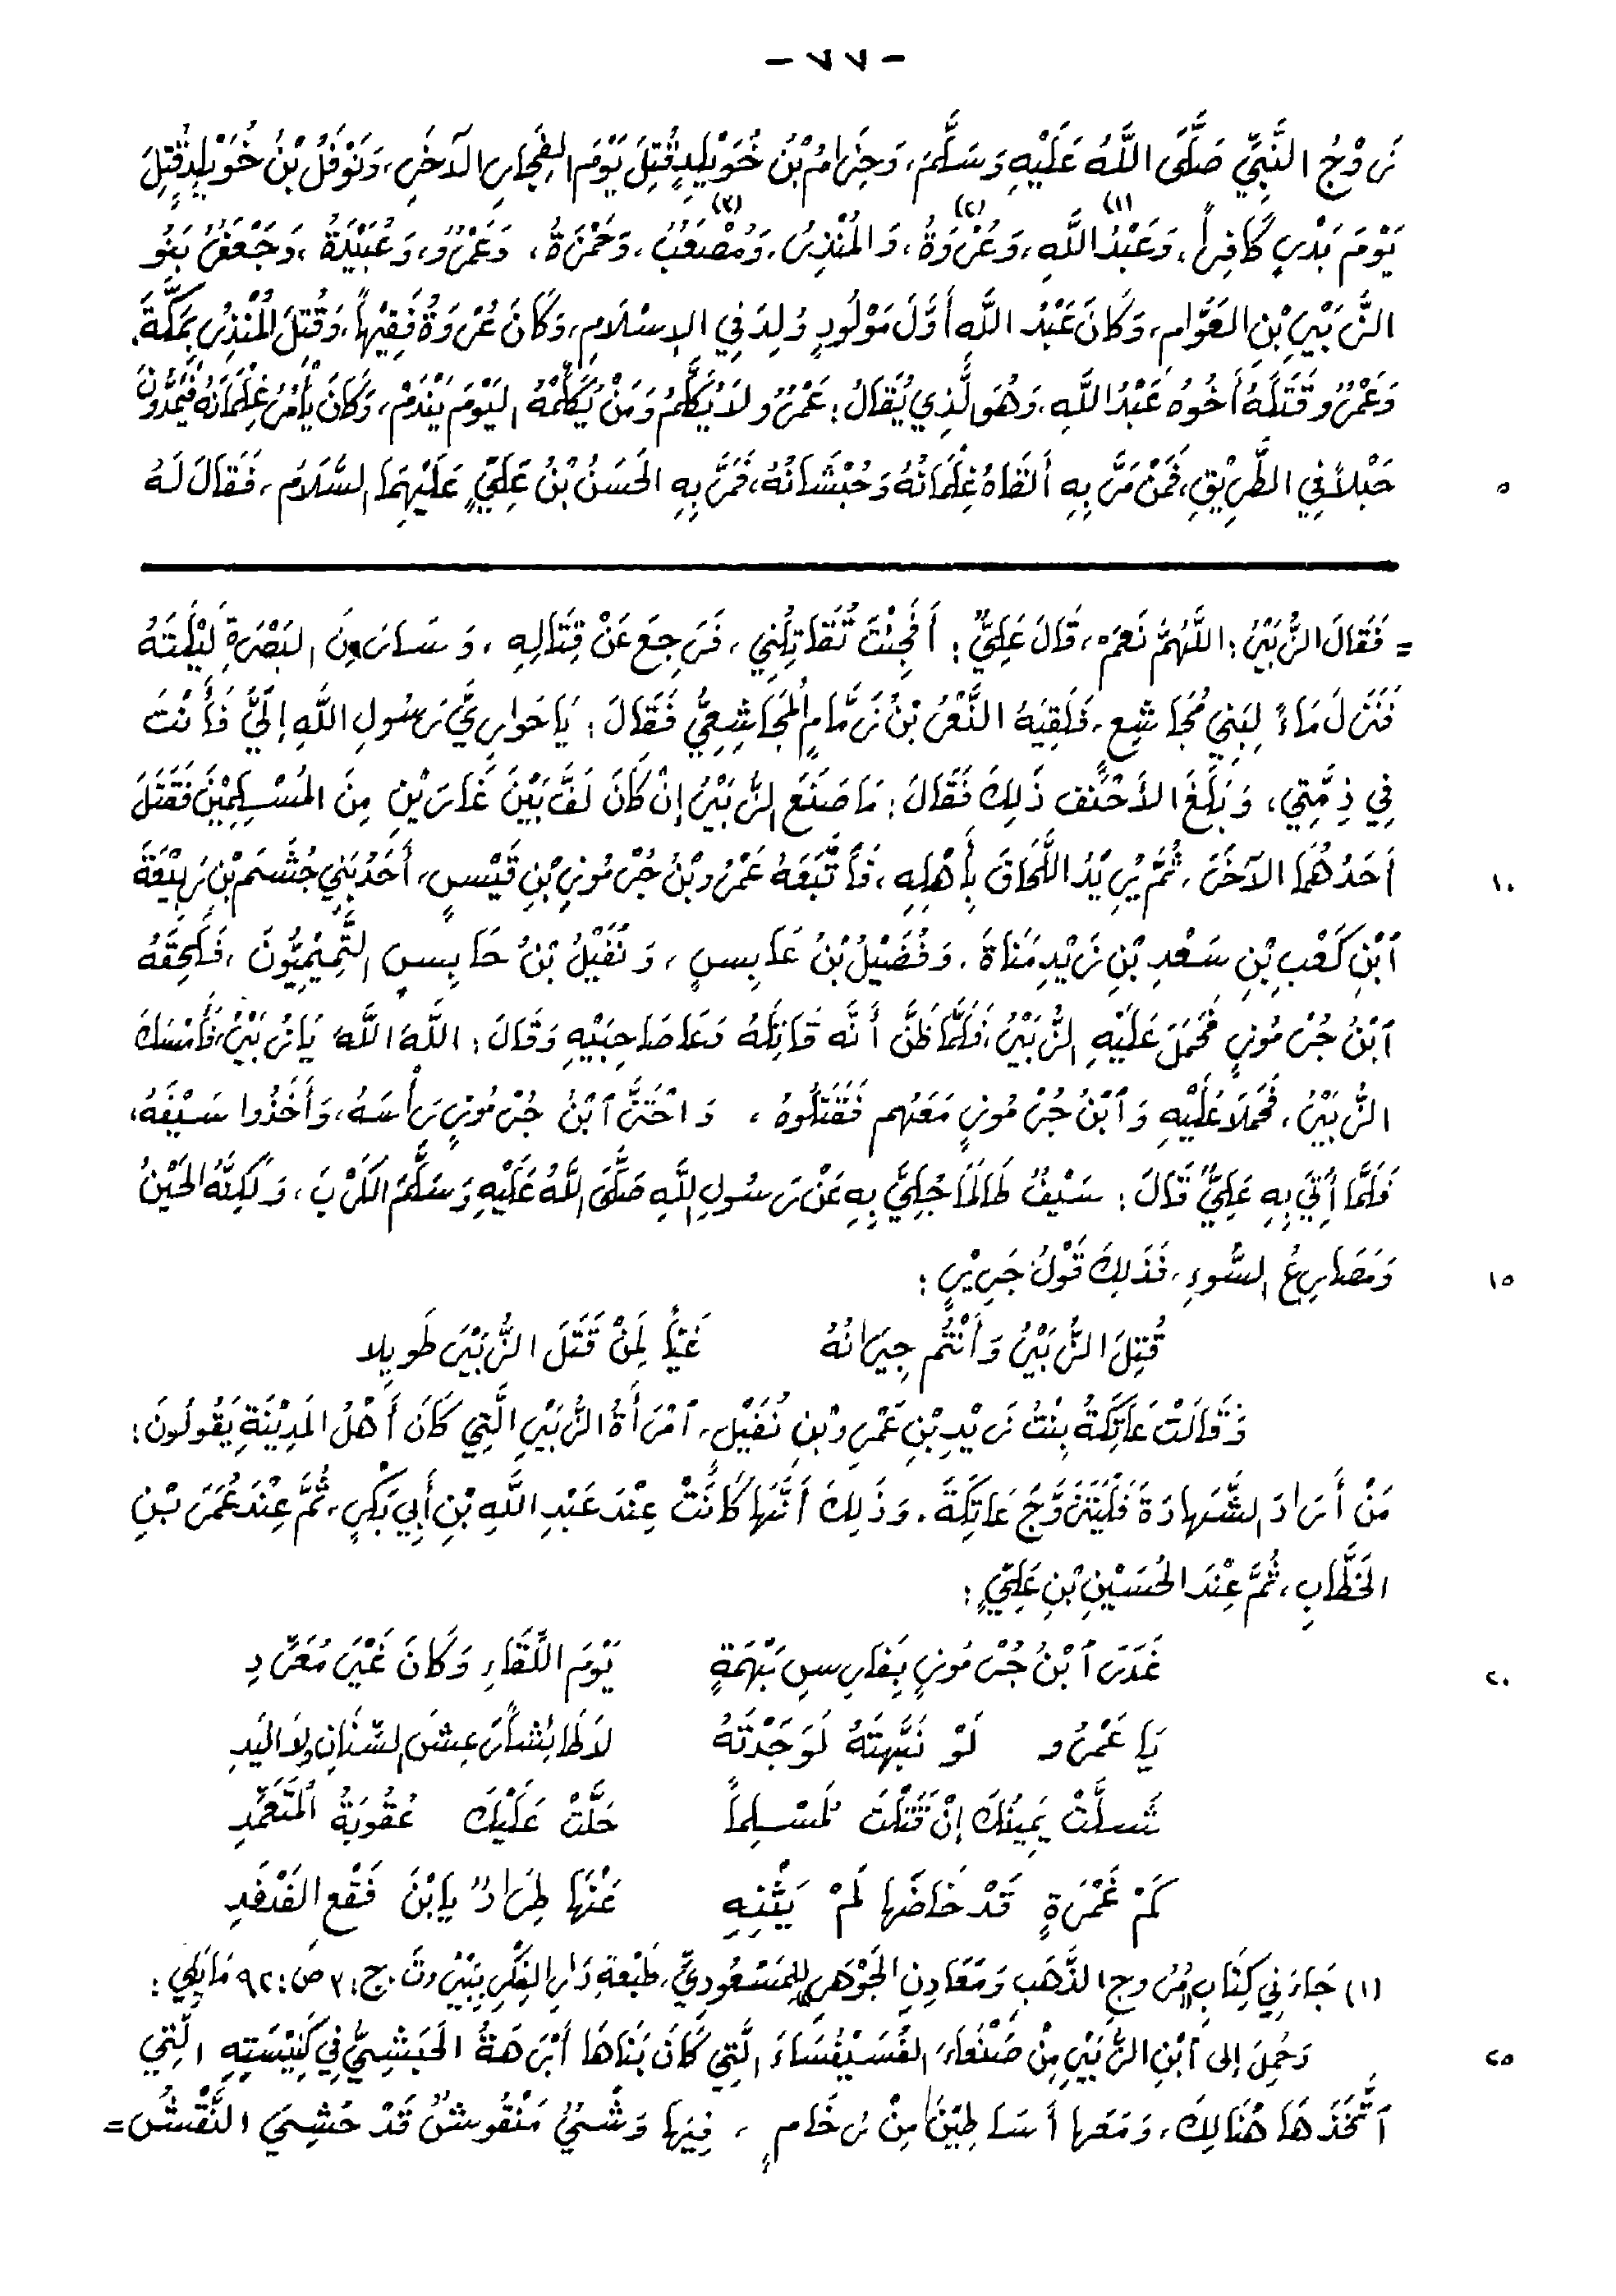 - ٧٧ -
زَوْجُ النَّبِيِّ صَلَّى اللَّهُ عَلَيْهِ وَسَلَّمَ، وَحِزَامُ بْنُ خُوَيْلِدٍ قُتِلَ يَوْمَ الفِجَارِ الآخَرِ، وَنَوْفَلُ بْنُ خُوَيْلِدٍ قُتِلَ
يَوْمَ بَدْرٍ كَافِراً، وَعَبْدُ اللَّهِ (١)، وَعُرْوَةُ (٢)، وَالمُنْذِرُ، وَمُصْعَبُ (٣)، وَحَمْزَةُ، وَعَمْرٌو، وَعُبَيْدَةُ، وَجَعْفَرُ بَنُو
الزُّبَيْرِ بْنِ العَوَّامِ، وَكَانَ عَبْدُ اللَّهِ أَوَّلَ مَوْلُودٍ وُلِدَ فِي الإِسْلَامِ، وَكَانَ عُرْوَةُ فَقِيْهاً، وَقُتِلَ المُنْذِرُ بِمَكَّةَ،
وَعَمْرٌو قَتَلَهُ أَخُوهُ عَبْدُ اللَّهِ، وَهُوَ الَّذِي يُقَالُ: عَمْرٌو لَا يُكَلَّمُ وَمَنْ يُكَلِّمْهُ اليَوْمَ يَنْدَمْ، وَكَانَ يَأْمُرُ غِلْمَانَهُ فَيَمُدُّونَ
حَبْلاً فِي الطَّرِيْقِ، فَمَنْ مَرَّ بِهِ أَلقَاهُ غِلْمَانُهُ وَحُبْشَانُهُ، فَمَرَّ بِهِ الحَسَنُ بْنُ عَلِيٍّ عَلَيْهِمَا السَّلَامُ، فَقَالَ لَهُ
٥
= فَقَالَ الزُّبَيْرُ: اللَّهُمَّ نَعَمْ، قَالَ عَلِيٌّ: أَفَجِئْتَ تُقَاتِلُنِي، فَرَجِعَ عَنْ قِتَالِهِ، وَسَارَ مِنَ البَصْرَةِ لَيْلَتَهُ
فَنَزَلَ مَاءً لِبَنِي مُجَاشِعٍ، فَلَقِيَهُ النَّعْرُ بْنُ زَمَّامٍ المُجَاشِعِيُّ فَقَالَ: يَا حَوَارِيَّ رَسُولِ اللَّهِ إِلَيَّ فَأَنْتَ
فِي ذِمَّتِي، وَبَلَغَ الأَحْنَفَ ذَلِكَ فَقَالَ: مَا صَنَعَ الزُّبَيْرُ إِنْ كَانَ لَفَّ بَيْنَ غَارَيْنِ مِنَ المُسْلِمِيْنَ فَقَتَلَ
أَحَدُهُمَا الآخَرَ، ثُمَّ يُرِيْدُ اللَّحَاقَ بِأَهْلِهِ، فَأَتْبَعَهُ عَمْرُو بْنُ جُرْمُوزِ بْنِ قَيْسٍ، أَحَدُ بَنِي جُشَمَ بْنِ رَبِيْعَةَ
١٠
ٱبْنِ كَعْبِ بْنِ سَعْدِ بْنِ زَيْدِ مَنَاةَ، وَفُضَيْلُ بْنُ عَابِسٍ، وَنُفَيْلُ بْنُ حَابِسٍ التَّمِيْمِيُّونَ، فَلَحِقَهُ
ٱبْنُ جُرْمُوزٍ فَحَمَلَ عَلَيْهِ الزُّبَيْرُ، فَلَمَّا ظَنَّ أَنَّه قَاتِلُهُ دَعَا صَاحِبَيْهِ وَقَالَ: اللَّهَ اللَّهَ يَا زُبَيْرُ، فَأَمْسَكَ
الزُّبَيْرُ، فَحَمَلَا عَلَيْهِ وَٱبْنُ جُرْمُوزٍ مَعَهُم فَقَتَلُوهُ، وَاحْتَزَّ ٱبْنُ جُرْمُوزٍ رَأْسَهُ، وَأَخَذُوا سَيْفَهُ،
فَلَمَّا أُتِيَ بِهِ عَلِيٌّ قَالَ: سَيْفٌ طَالَمَا جُلِيَ بِهِ عَنْ رَسُولِ اللَّهِ صَلَّى اللَّهُ عَلَيْهِ وَسَلَّمَ الكَرْبَ، وَلَكِنَّهُ الحَيْنُ
وَمَصَارِعُ السُّوءِ، فَذَلِكَ قَوْلُ جَرِيْرٍ:
١٥
قُتِلَ الزُّبَيْرُ وَأَنْتُم جِيرَانُهُ غَيّاً لِمَنْ قَتَلَ الزُّبَيْرَ طَوِيلا
وَقَالَتْ عَاتِكَةُ بِنْتُ زَيْدِ بْنِ عَمْرِو بْنِ نُفَيْلٍ، ٱمْرَأَةُ الزُّبَيْرِ الَّتِي كَانَ أَهْلُ المَدِيْنَةِ يَقُولُونَ:
مَنْ أَرَادَ الشَّهَادَةَ فَلْيَتَزَوَّجْ عَاتِكَةَ. وَذَلِكَ أَنَّهَا كَانَتْ عِنْدَ عَبْدِ اللَّهِ بْنِ أَبِي بَكْرٍ، ثُمَّ عِنْدَ عُمَرَ بْنِ
الخَطَّابِ، ثُمَّ عِنْدَ الحُسَيْنِ بْنِ عَلِيٍّ:
غَدَرَ ٱبْنُ جُرْمُوزٍ بِفَارِسِ بُهْمَةٍ يَوْمَ اللِّقَاءِ وَكَانَ غَيْرَ مُعَرِّدِ
٢٠
يَا عَمْرُو لَوْ نَبَّهْتَهُ لَوَجَدْتَهُ لَا طَائِشاً رَعِشَ السِّنَانِ وَلَا اليَدِ
شَلَّتْ يَمِينُكَ إِنْ قَتَلْتَ لَمُسْلِماً حَلَّتْ عَلَيْكَ عُقُوبَةُ المُتَعَمِّدِ
كَمْ غَمْرَةٍ قَدْ خَاضَهَا لَمْ يَثْنِهِ عَنْهَا طِرَادٌ يَا ابْنَ فَقْعِ الفَدْفَدِ
(١) جَاءَ فِي كِتَابِ مُرُوجِ الذَّهَبِ وَمَعَادِنِ الجَوْهَرِ لِلمَسْعُودِيِّ، طَبْعَةِ دَارِ الفِكْرِ بِبَيْرُوتَ. ج: ٣ ص: ٩٢ مَا يَلِي:
وَحُمِلَ إِلى ٱبْنِ الزُّبَيْرِ مِنْ صَنْعَاءَ الفُسَيْفُسَاءَ الَّتِي كَانَ بَنَاهَا أَبْرَهَةُ الحَبَشِيُّ فِي كَنِيْسَتِهِ الَّتِي
٢٥
ٱتَّخَذَهَا هُنَالِكَ، وَمَعَهَا أَسَاطِيْنَ مِنْ رُخَامٍ، فِيْهَا وَشْيٌ مَنْقُوشٌ قَدْ حُشِيَ النَّقْشُ =